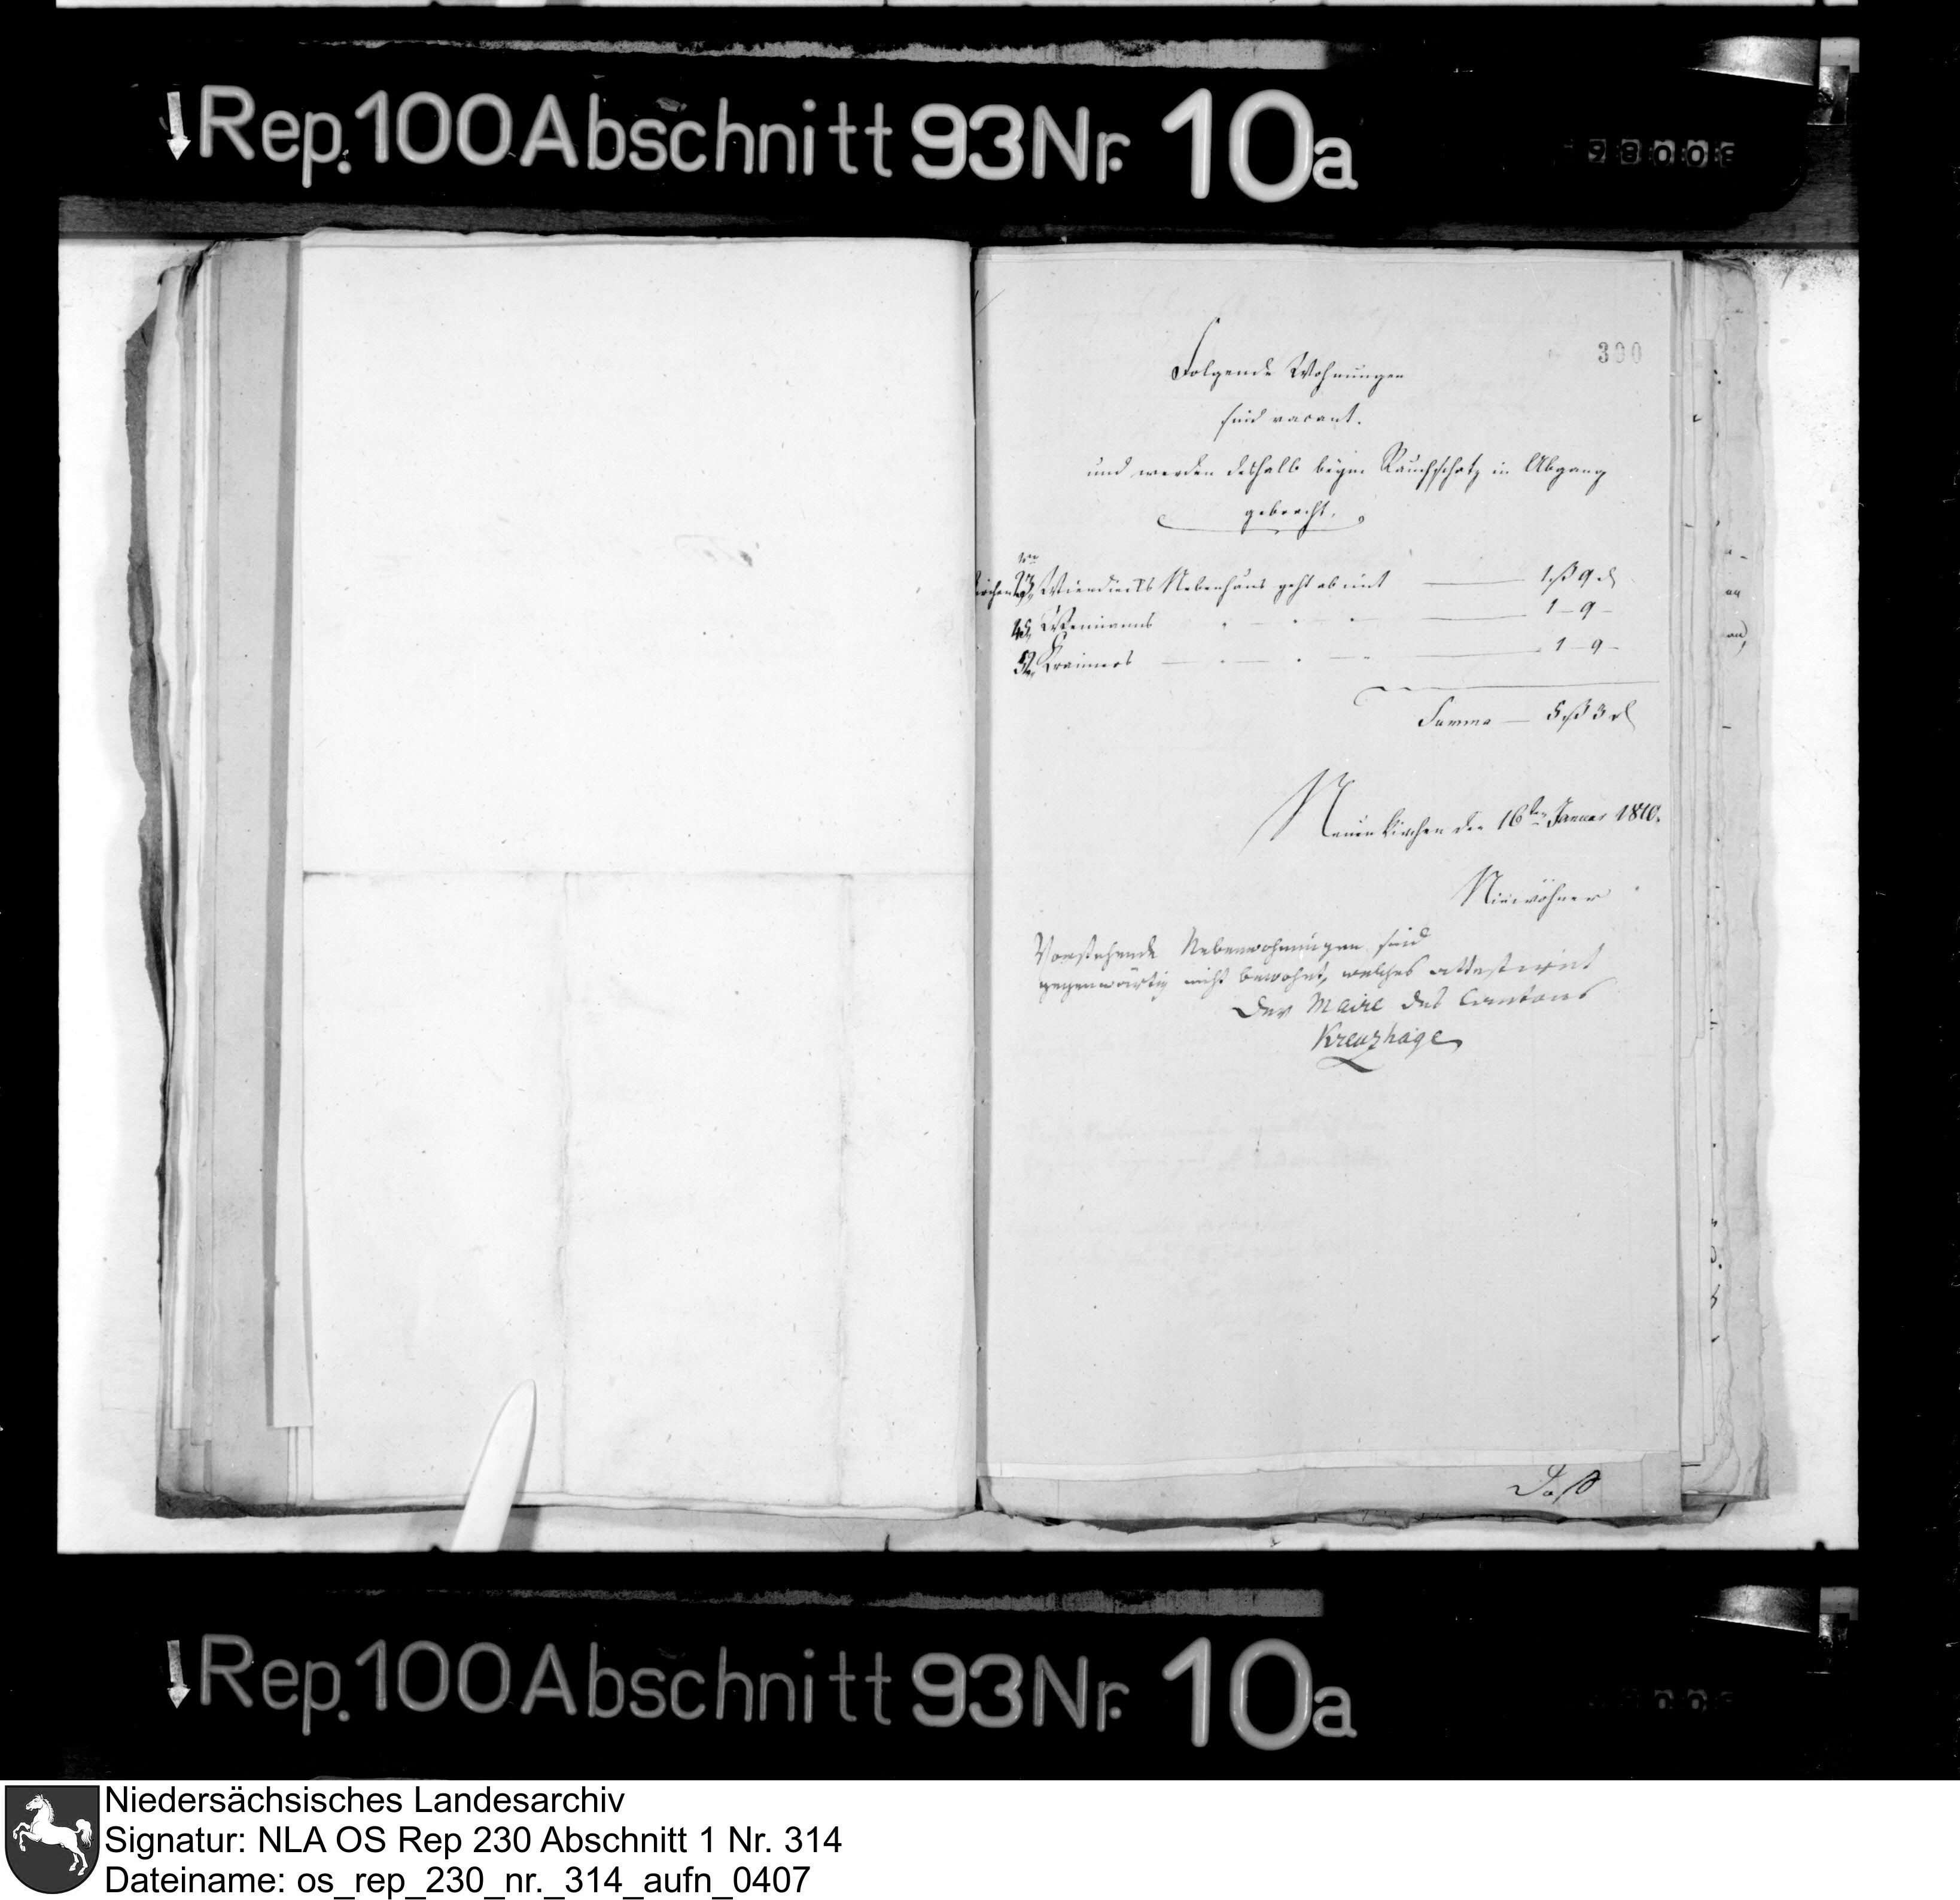 Rep. 100 Abschnitt 93 Nr. 10a
300
Folgende Wohnungen
sind vacant.
und werden deshalb beym Rauchschatz in Abgang
gebracht.
Nebenhaus geht ab mit 1 ß 9 d
1 - 9 -
52, 1 - 9 -
Summa — 5 ß 3 d
Neuenkirchen den 16ten Januar 1810.
Niewöhner
Vorstehende Nebenwohnungen sind
gegenwärtig nicht bewohnt, welches attestirt
Der Maire des Cantons
Kreuzhage
Rep. 100 Abschnitt 93 Nr. 10a
Niedersächsisches Landesarchiv
Signatur: NLA OS Rep 230 Abschnitt 1 Nr. 314
Dateiname: os_rep_230_nr._314_aufn_0407